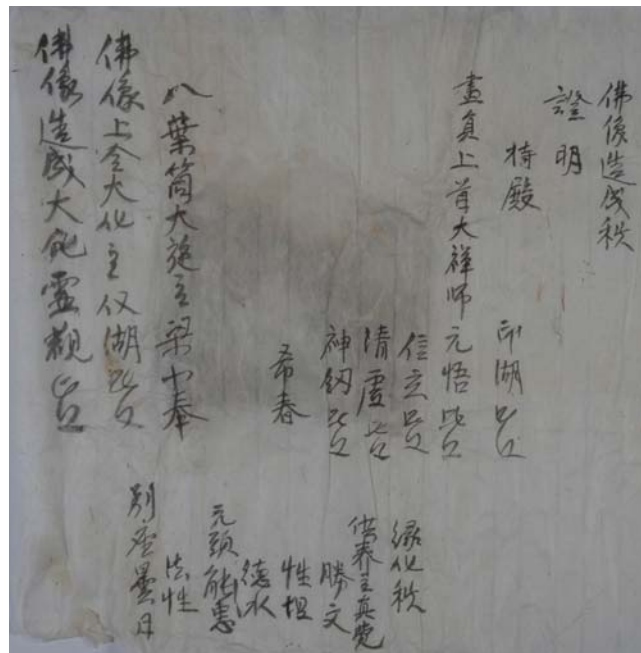 佛像造成秩
證明
持殿 印湖比丘
畫負上首大禅師元悟比丘
信玄比丘
清虛比丘
神釰比丘
希春
八葉筒大施主梁十奉
佛像上金大化主仅湖比丘
佛像造成大化霊觀比丘
縁化秩
供养主真覺
勝文
性坦
德水
元頭能惠
法性
別座曇日